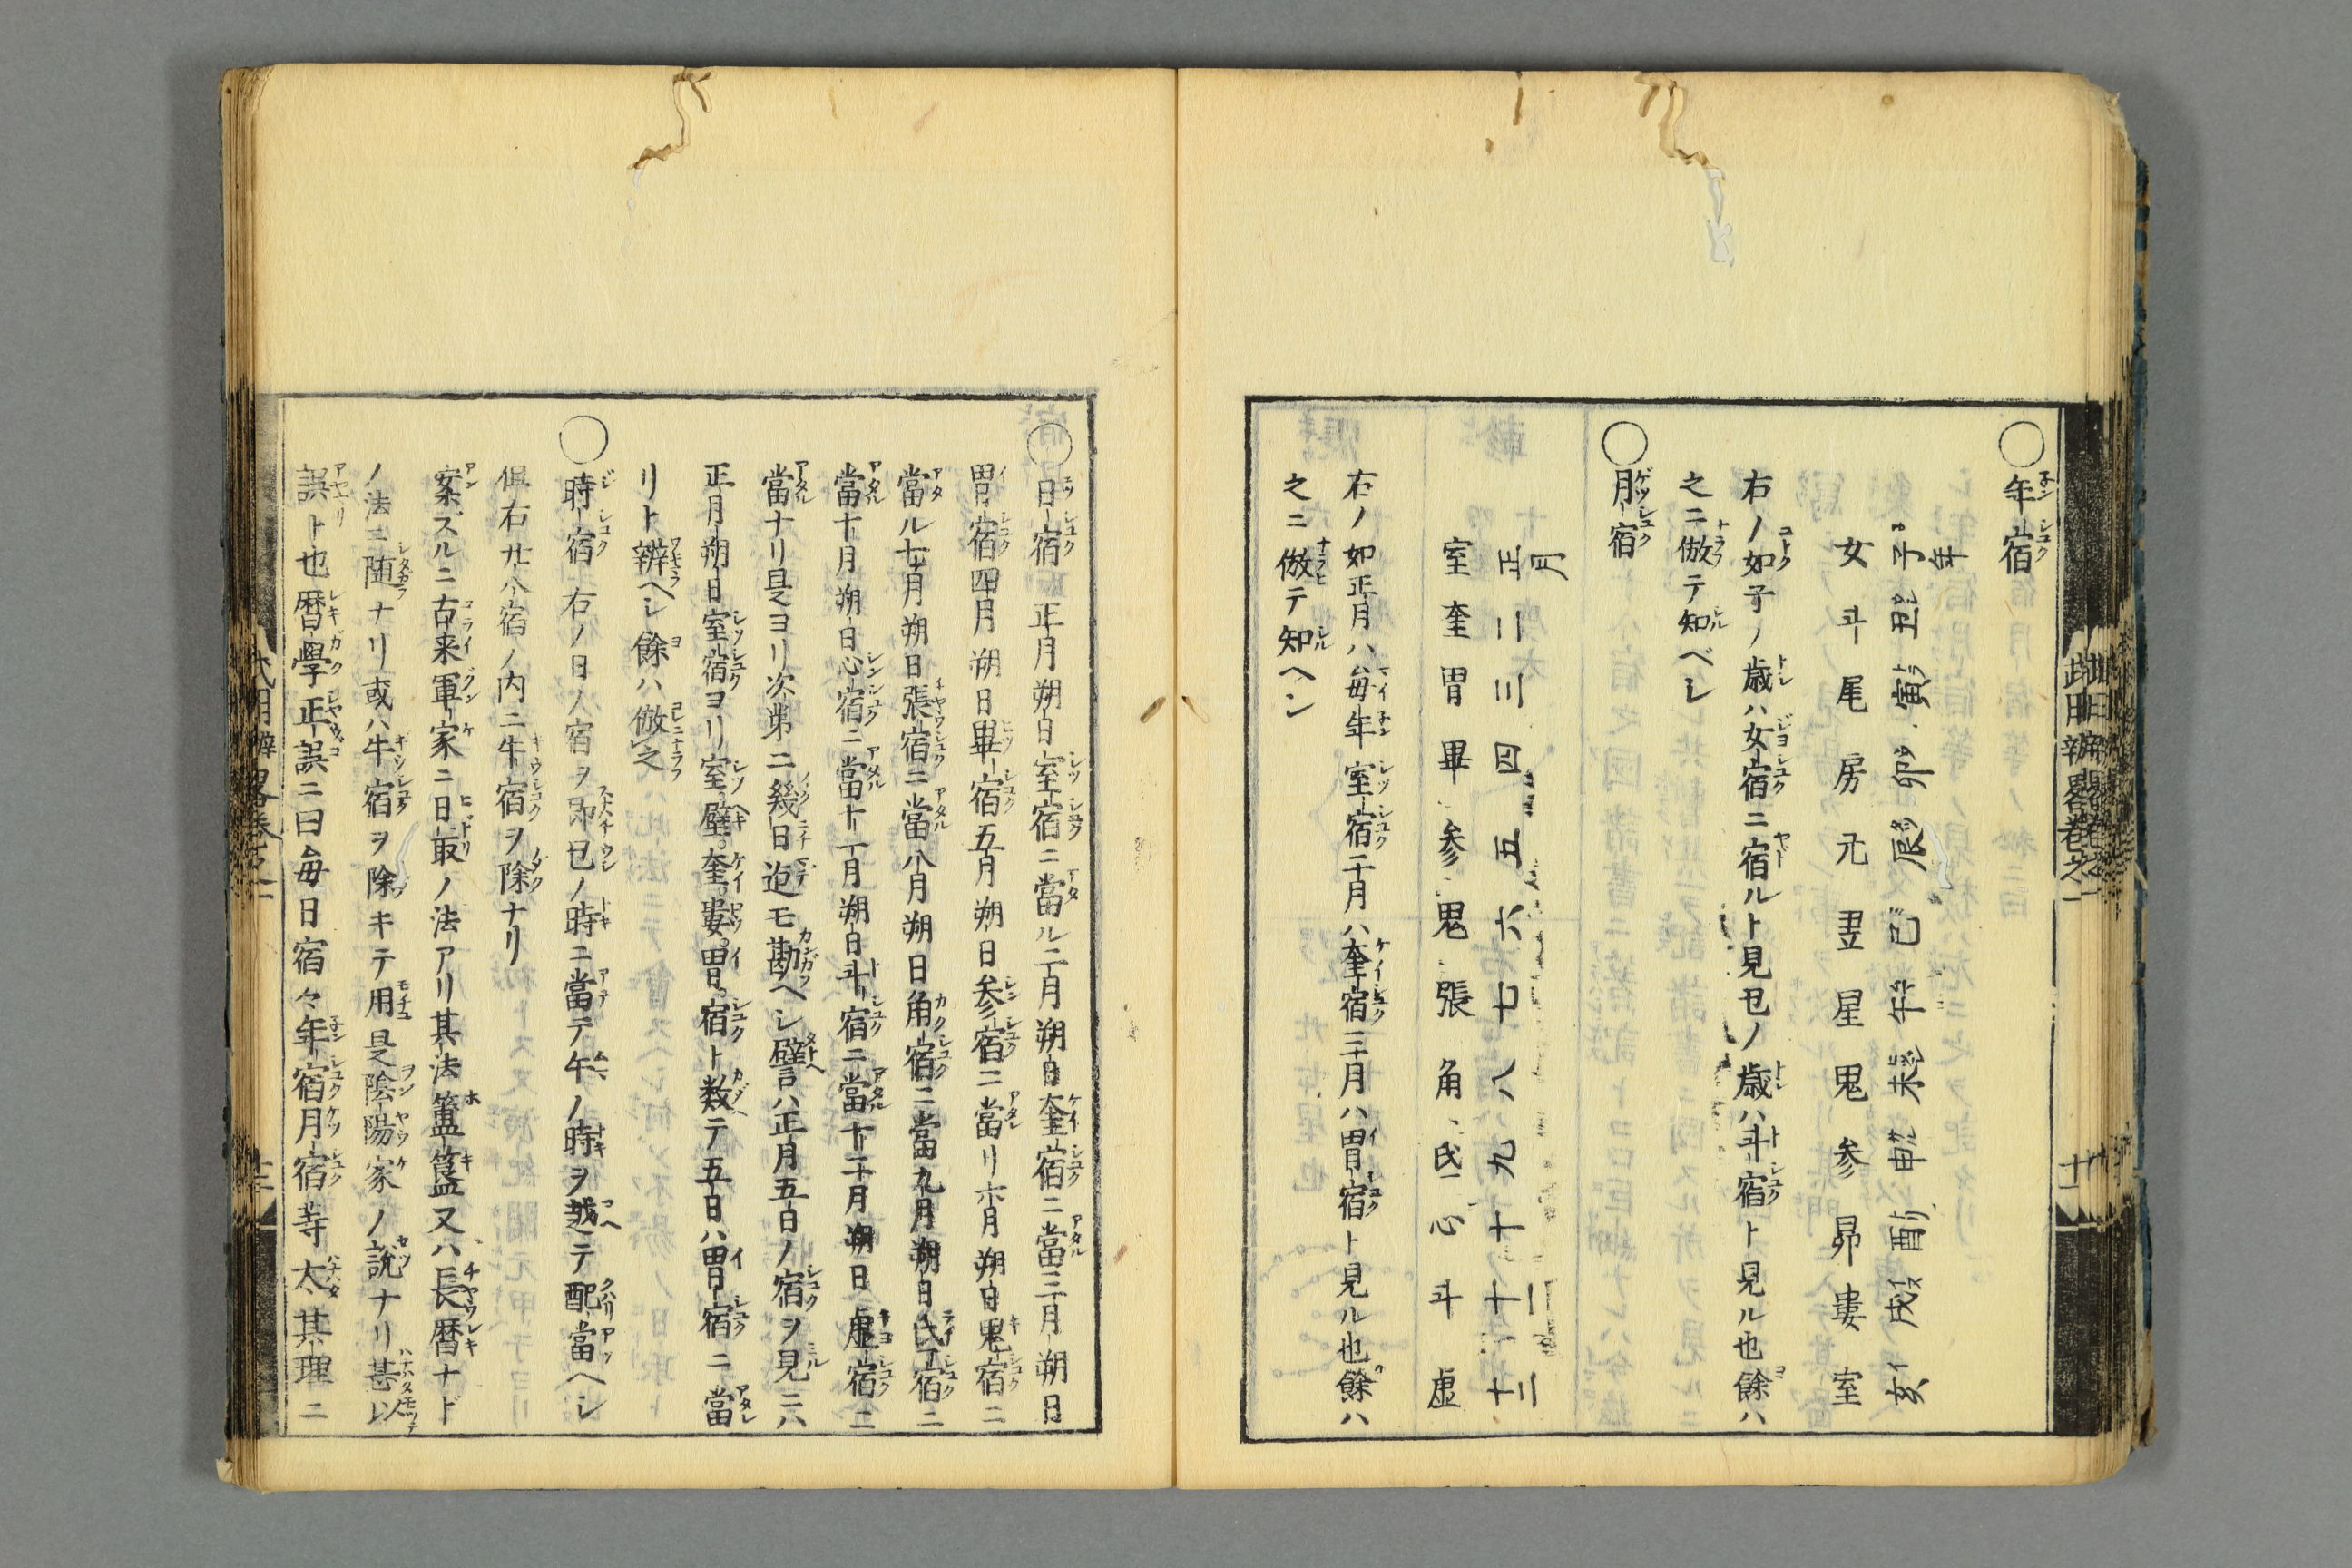 ○年宿
年
子丑寅卯辰巳午未申酉戌亥
女斗尾房亢翌星鬼参昴婁室
右ノ如子ノ歳ハ女宿ニ宿ルト見丑ノ歳ハ斗宿ト見ル也餘ハ
之ニ倣テ知ベシ
○月宿
正二三四五六七八九十十一十二
室奎胃畢参鬼張角氐心斗虚
右ノ如正月ハ毎年室宿二月ハ奎宿三月ハ胃宿ト見ル也餘ハ
之ニ倣テ知ヘシ
○日宿 正月朔日室宿ニ當ル二月朔日奎宿ニ當三月朔日
胃宿四月朔日畢宿五月朔日参宿ニ當リ六月朔日鬼宿ニ
當ル七月朔日張宿ニ當八月朔日角宿ニ當九月朔日氐宿ニ
當十月朔日心宿ニ當十一月朔日斗宿ニ當十二月朔日虚宿ニ
當ナリ是ヨリ次第ニ幾日迄モ勘ヘシ譬ハ正月五日ノ宿ヲ見ニハ
正月朔日室宿ヨリ室壁奎婁胃宿ト数テ五日ハ胃宿ニ當
リト辨ヘシ餘ハ倣之
○時宿 右ノ日ノ宿ヲ即丑ノ時ニ當テ午ノ時ヲ越テ配當ヘシ
但右廿八宿ノ内ニ牛宿ヲ除ナリ
案スルニ古来軍家ニ日取ノ法アリ其法簠簋又ハ長暦ナド
ノ法ニ随ナリ或ハ牛宿ヲ除キテ用是陰陽家ノ説ナリ甚以
誤ト也暦學正誤ニ曰毎日宿々年宿月宿寺太其理ニ